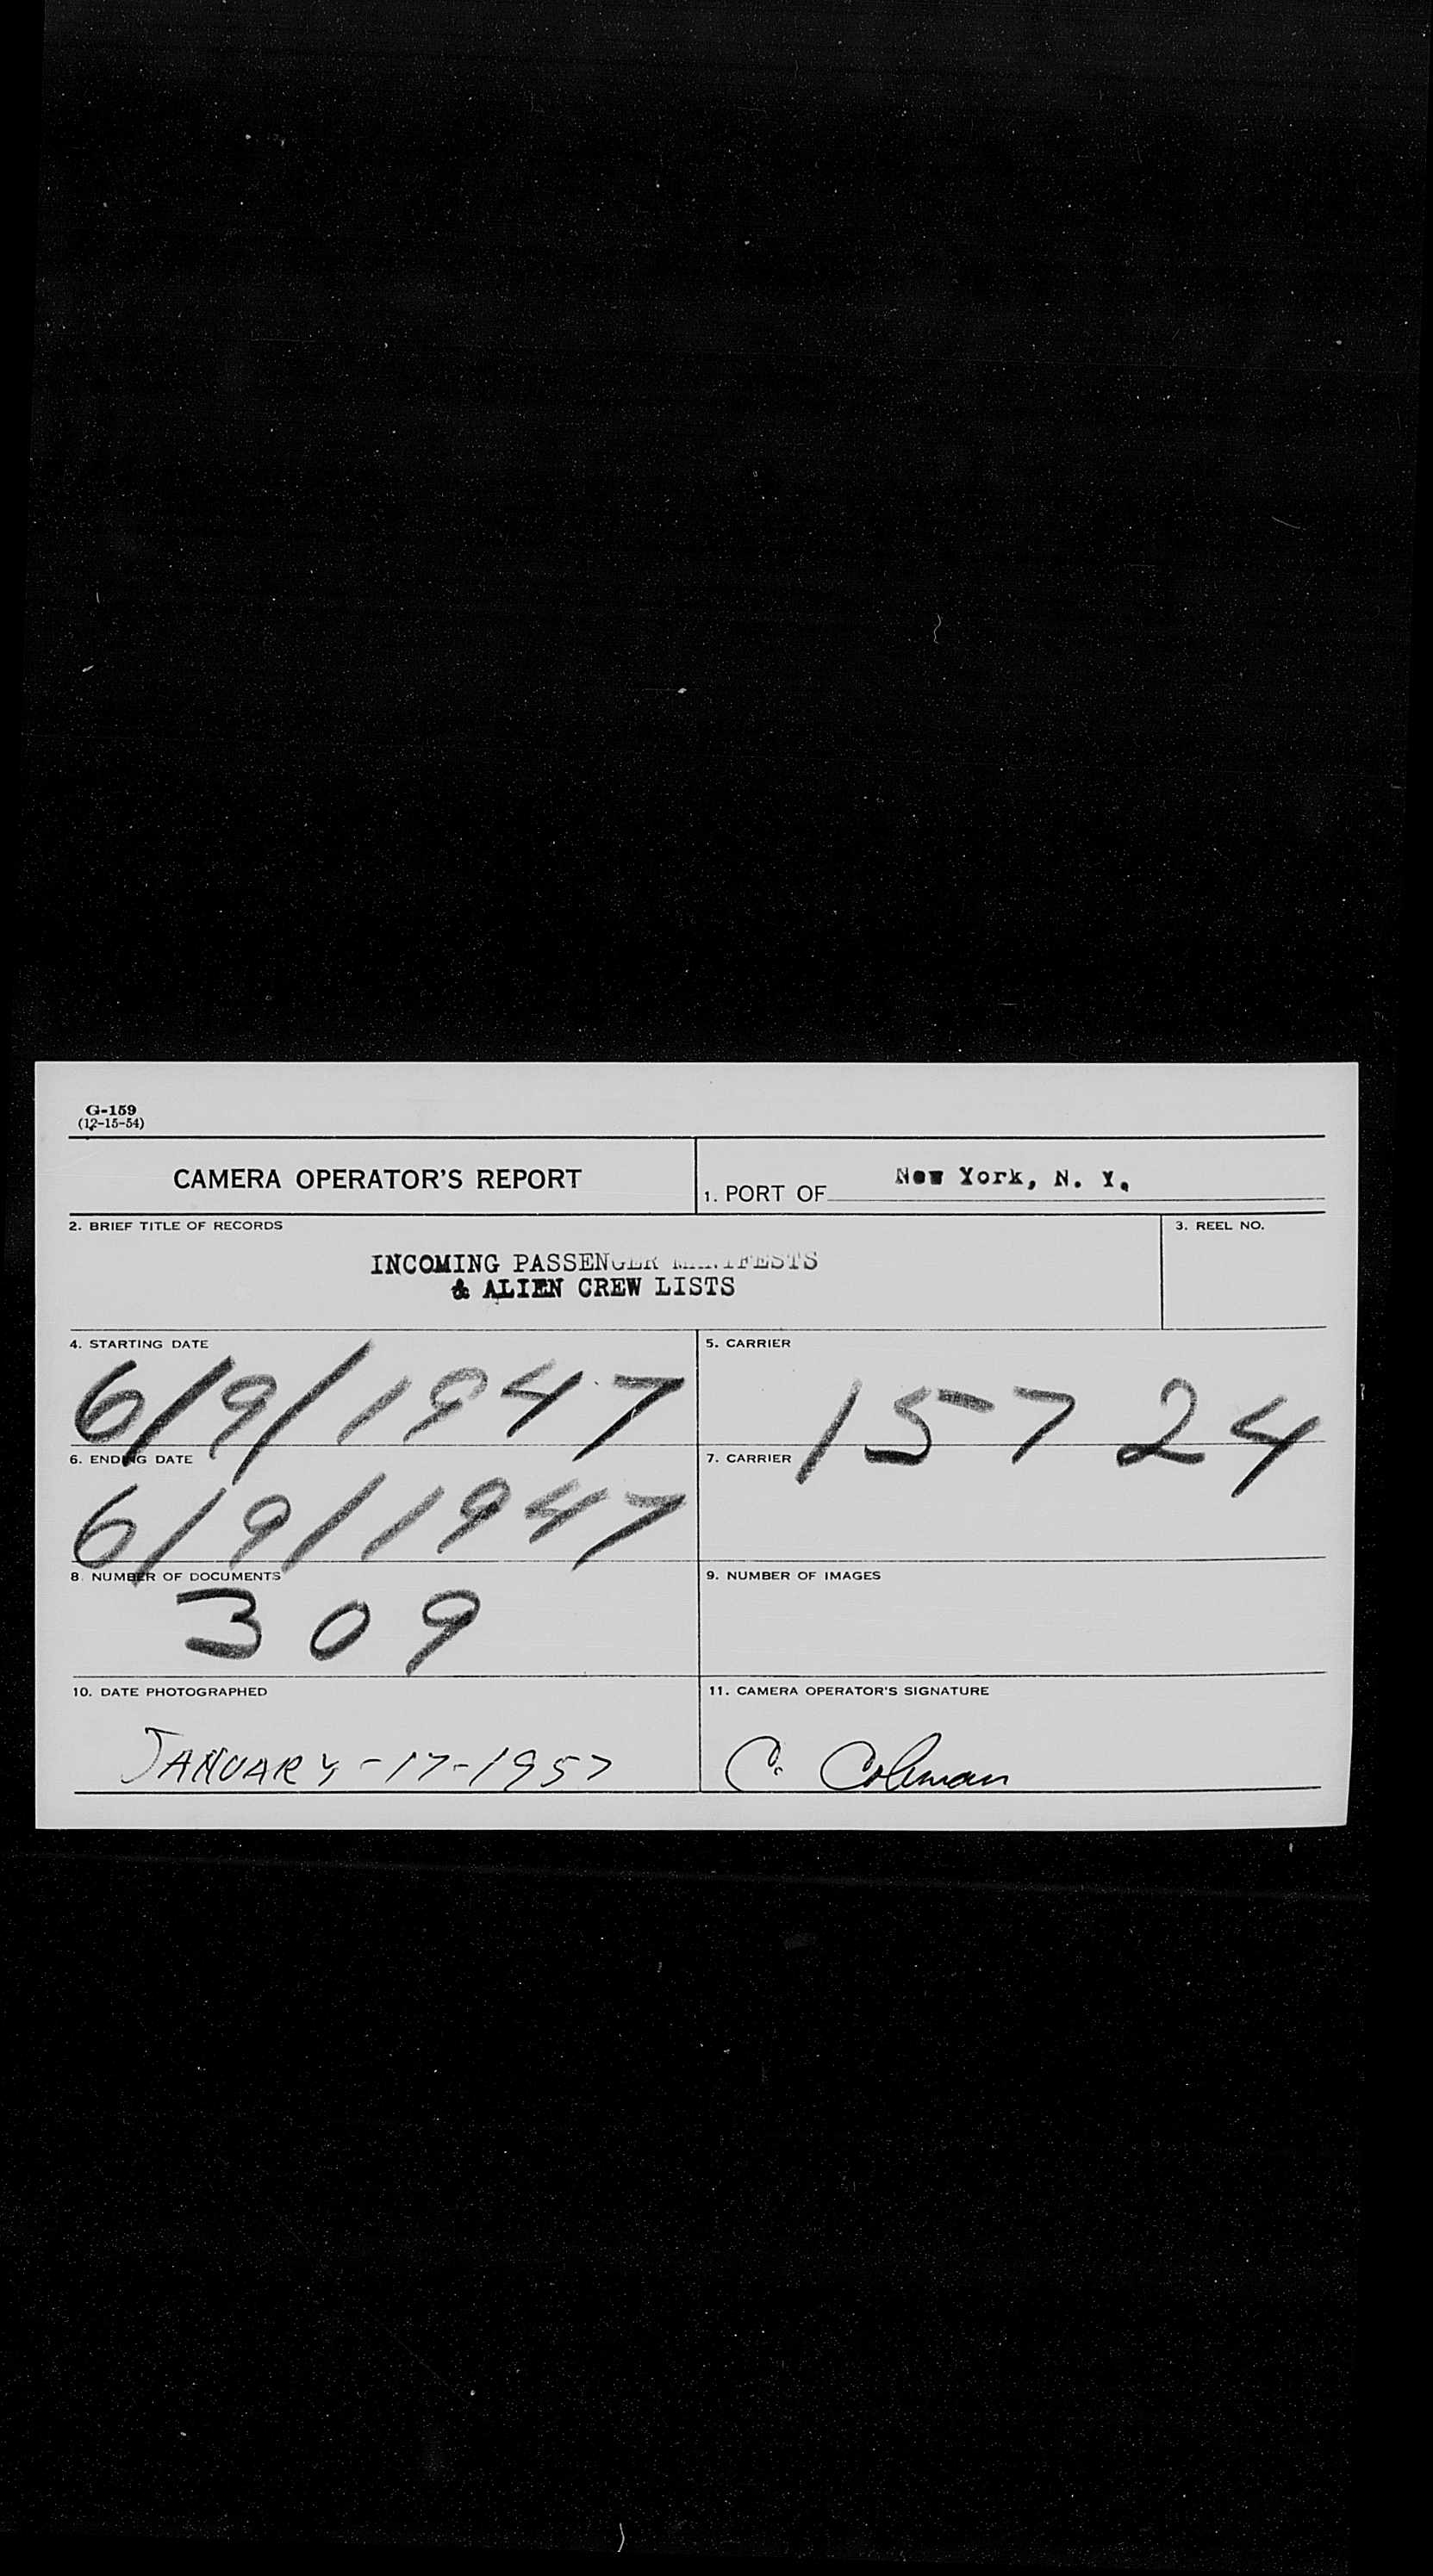 G-159
(12-15-54)
CAMERA OPERATOR'S REPORT
1. PORT OF New York, N. Y.
2. BRIEF TITLE OF RECORDS
3. REEL NO.
INCOMING PASSENGER MANIFESTS
& ALIEN CREW LISTS
4. STARTING DATE
5. CARRIER
6/9/1947
15724
6. ENDING DATE
7. CARRIER
6/9/1947
8. NUMBER OF DOCUMENTS
9. NUMBER OF IMAGES
309
10. DATE PHOTOGRAPHED
11. CAMERA OPERATOR'S SIGNATURE
JANUARY-17-1957
C. Coleman